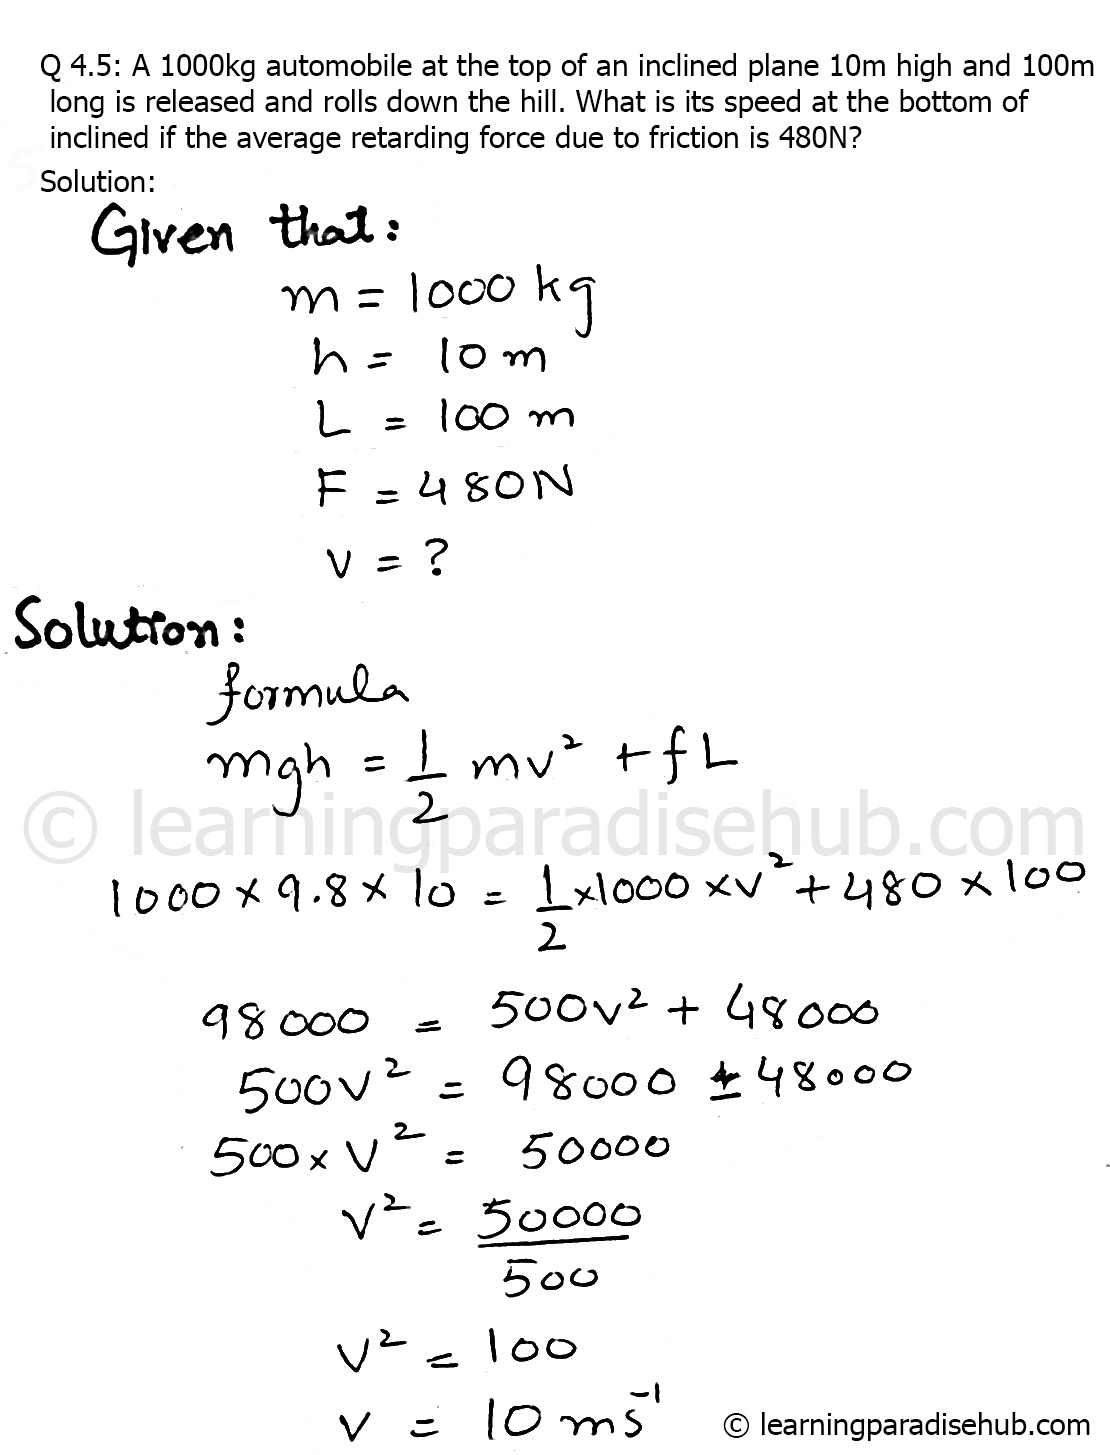 Q 4.5: A 1000kg automobile at the top of an inclined plane 10m high and 100m
long is released and rolls down the hill. What is its speed at the bottom of
inclined if the average retarding force due to friction is 480N?
Solution:
Given that:
m = 1000 kg
h = 10 m
L = 100 m
F = 480N
v = ?
Solution:
formula
mgh = 1/2 mv² + fL
© learningparadisehub.com
1000 × 9.8 × 10 = 1/2 ×1000 ×v² + 480 × 100
98000 = 500v² + 48000
500v² = 98000 - 48000
500 × v² = 50000
v² = 50000/500
v² = 100
v = 10 ms⁻¹
© learningparadisehub.com